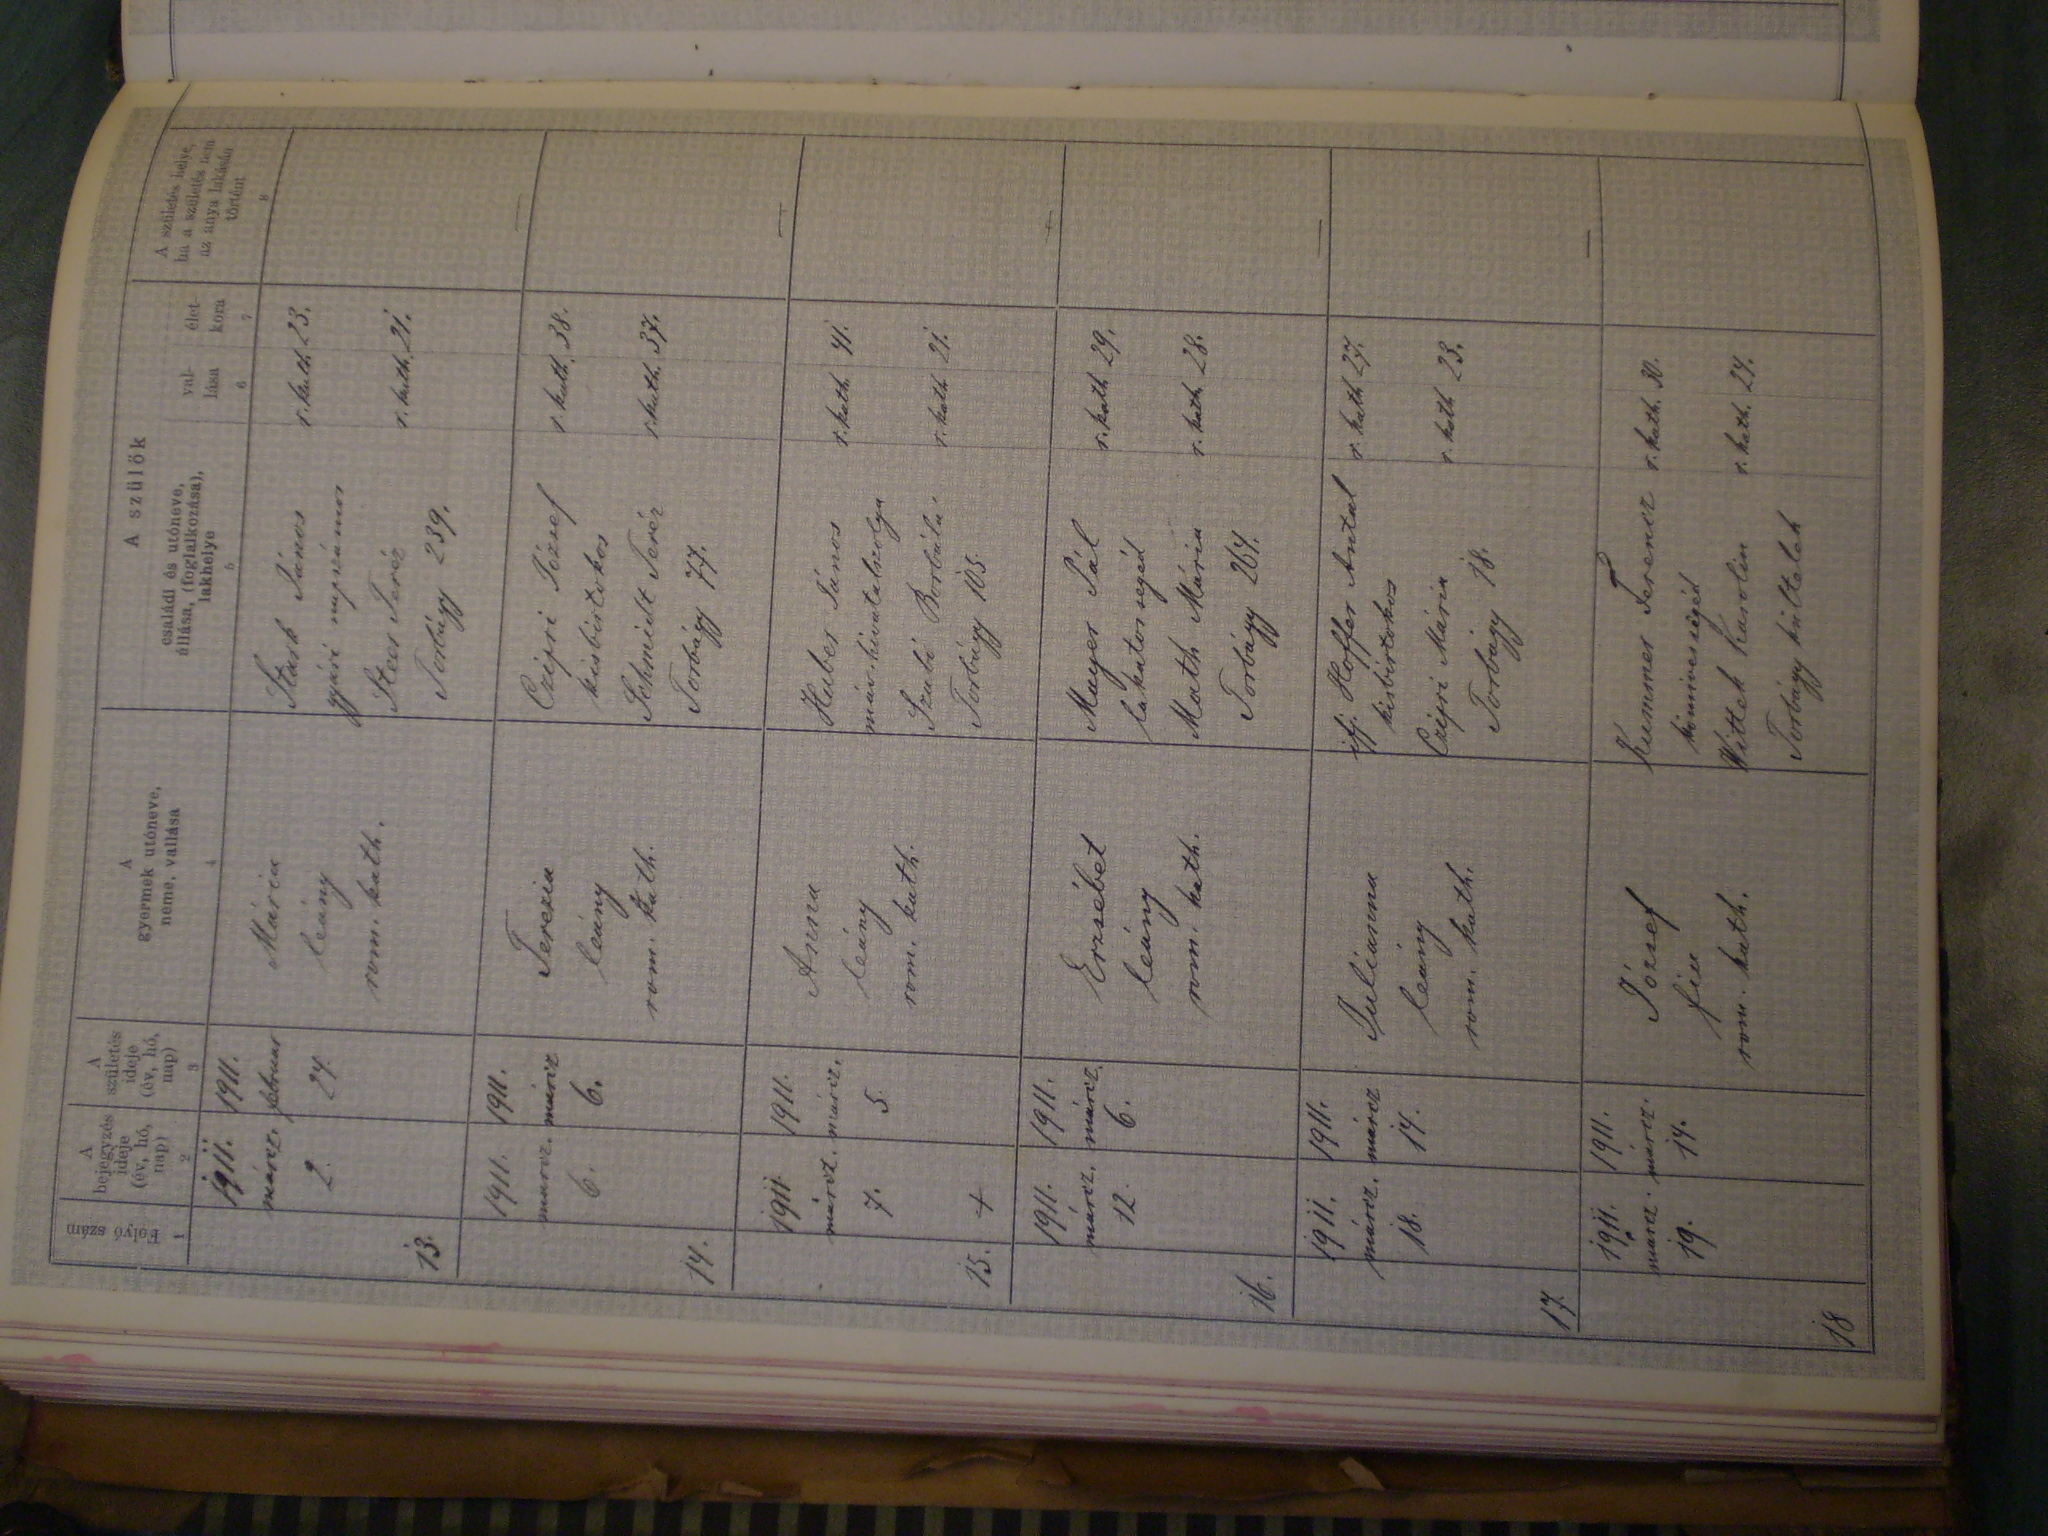 A szülők
Folyó szám
A bejegyzés ideje (év, hó, nap)
A születés ideje (év, hó, nap)
A gyermek utóneve, neme, vallása
családi és utóneve, állása, (foglalkozása), lakhelye
vallása
életkora
A születés helye, ha a születés nem az anya lakásán történt
1 2 3 4 5 6 7 8
13.
1911. márcz. 2.
1911. február 24.
Mária
leány
rom. kath.
Stark János r. kath. 23.
gyári napszámos
Stecs Teréz r. kath. 21.
Torbágy 239.
14.
1911. márcz. 6.
1911. márcz 6.
Terézia
leány
rom. kath.
Czipri József r. kath. 38.
kisbirtokos
Schmidt Teréz r. kath. 37.
Torbágy 77.
—
15.
1911 márcz. 7.
+
1911. márcz. 5.
Anna
leány
rom. kath.
Huber János r. kath. 41.
máv. hivatalszolga
Szabó Borbála r. kath. 21.
Torbágy 105.
—
16.
1911. márcz. 12.
1911. márcz. 6.
Erzsébet
leány
rom. kath.
Mayer Pál r. kath 29.
lakatos segéd
Math Mária r. kath. 28.
Torbágy 264.
17.
1911. márcz. 18.
1911. márcz 14.
Julianna
leány
rom. kath.
ifj. Hoffer Antal r. kath 27.
kisbirtokos
Czipri Mária r. kath 23.
Torbágy 18.
—
18
1911. márcz. 19.
1911. márcz. 14.
József
fiu
rom. kath.
Kummer Ferencz r. kath. 30.
kőmivessegéd
Wittek Karolin r. kath. 24.
Torbágy kültelek
—